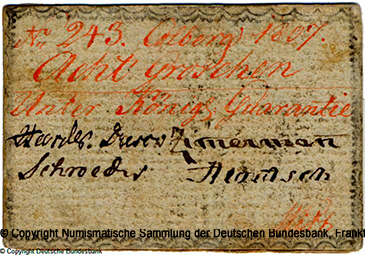 No 243. Colberg 1807.
Acht Groschen
Unter Königl. Guarantie
Zimmerman
Schroeder
© Copyright Numismatische Sammlung der Deutschen Bundesbank, Frankf
© Copyright Deutsche Bundesbank